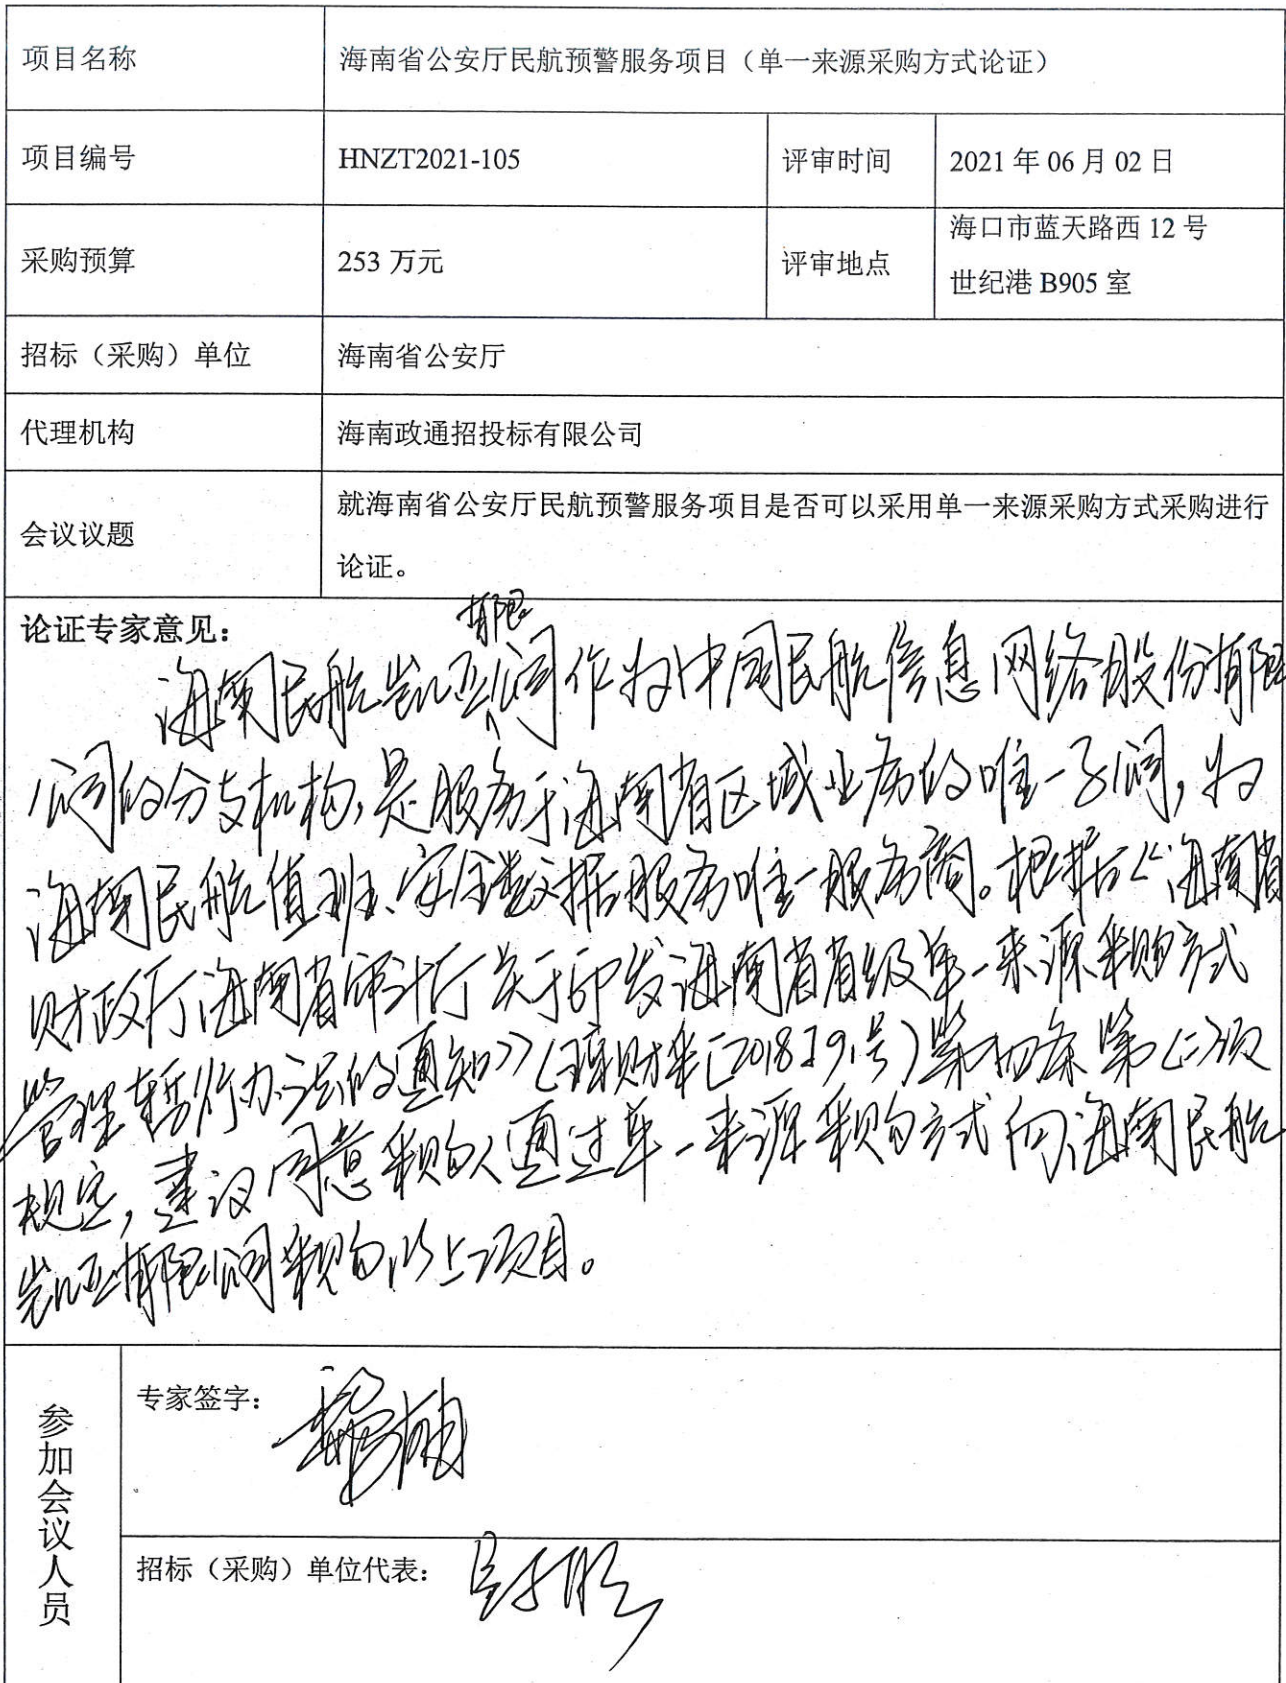 项目名称 海南省公安厅民航预警服务项目（单一来源采购方式论证）
项目编号 HNZT2021-105 评审时间 2021 年 06 月 02 日
采购预算 253 万元 评审地点 海口市蓝天路西 12 号
世纪港 B905 室
招标（采购）单位 海南省公安厅
代理机构 海南政通招投标有限公司
会议议题 就海南省公安厅民航预警服务项目是否可以采用单一来源采购方式采购进行
论证。
论证专家意见：
有限
海南民航凯亚公司作为中国民航信息网络股份有限
公司的分支机构，是服务于海南省区域业务的唯一子公司，为
海南民航值班、安全数据服务唯一服务商。根据《海南省
财政厅海南省审计厅关于印发海南省省级单一来源采购方式
管理暂行办法的通知》（琼财采[2018]9号）第四条第（二）项
规定，建议同意采购人通过单一来源采购方式向海南民航
凯亚有限公司采购以上项目。
参加会议人员
专家签字：
招标（采购）单位代表：